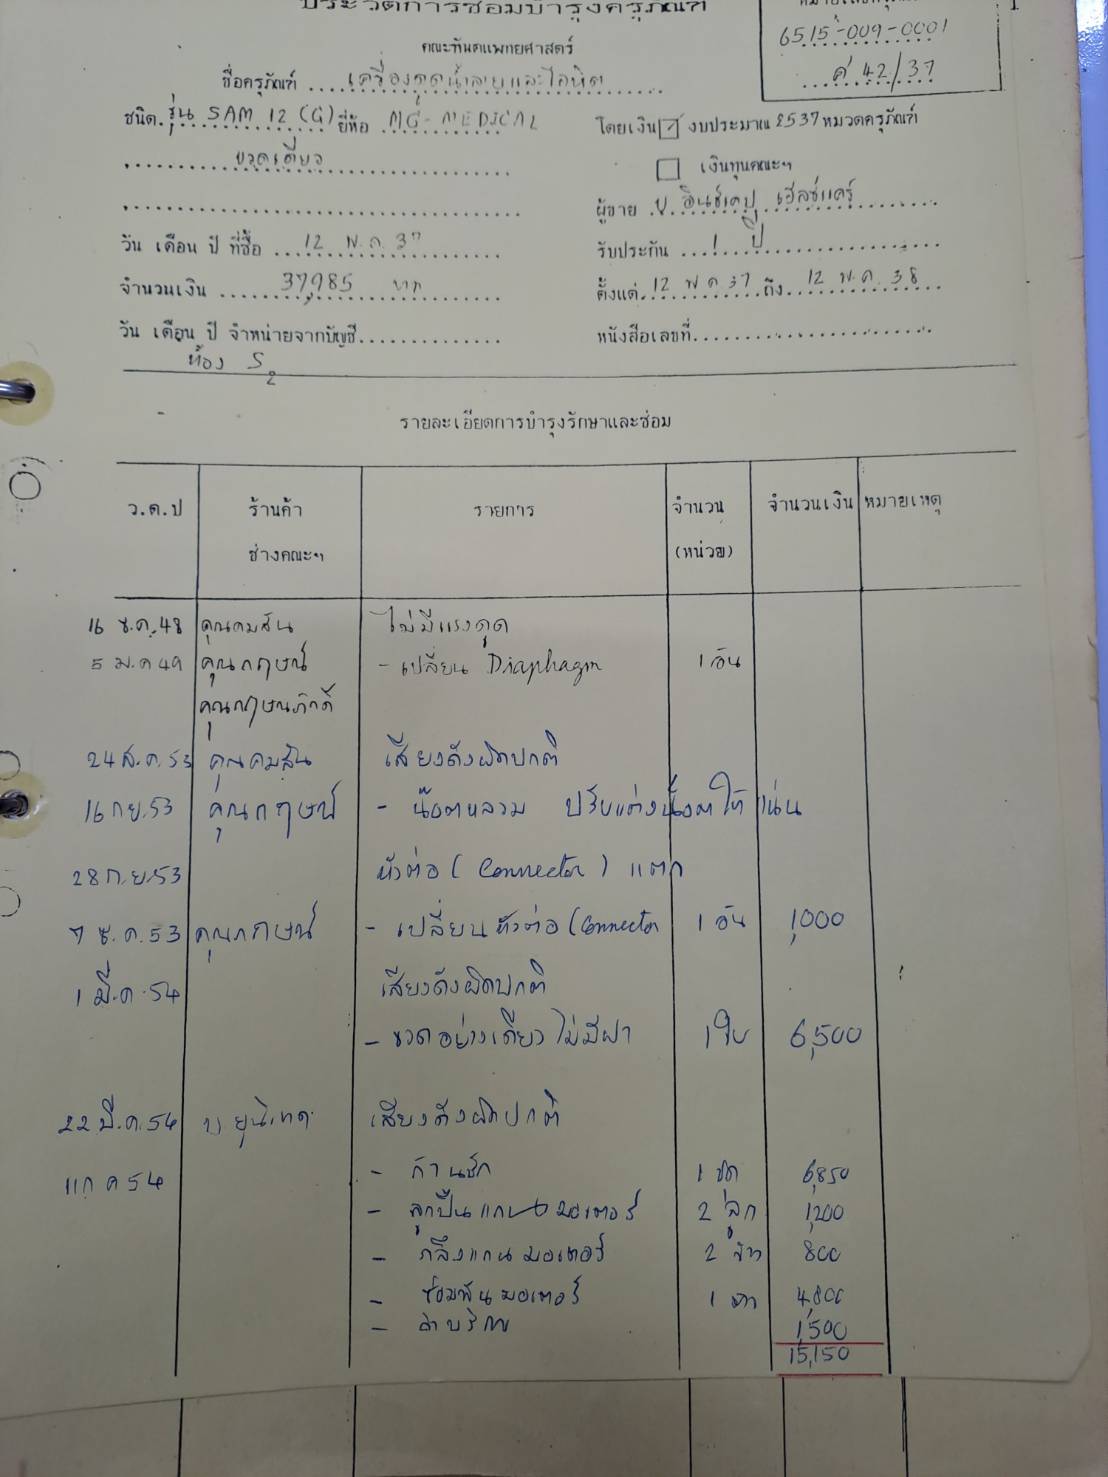 ประวัติการซ่อมบำรุงครุภัณฑ์
คณะทันตแพทยศาสตร์
6515-009-0001
ค 42/37
ชื่อครุภัณฑ์ เครื่องดูดน้ำลายและโลหิต
ชนิด รุ่น SAM 12 (G) ยี่ห้อ MG-MEDICAL
โดยเงิน งบประมาณ 2537 หมวดครุภัณฑ์
ขวดเดียว
เงินทุนคณะฯ
ผู้ขาย บ. เฮลธ์แคร์
วัน เดือน ปี ที่ซื้อ 12 พ.ค. 37
รับประกัน 1 ปี
จำนวนเงิน 37,985 บาท
ตั้งแต่ 12 พค 37 ถึง 12 พ.ค. 38
วัน เดือน ปี จำหน่ายจากบัญชี
หนังสือเลขที่
ห้อง S2
รายละเอียดการบำรุงรักษาและซ่อม
ว.ด.ป ร้านค้า รายการ จำนวน จำนวนเงิน หมายเหตุ
ช่างคณะฯ (หน่วย)
16 ธ.ค. 48 คุณคมสัน ไม่มีแรงดูด
5 ม.ค 49 คุณกฤษณ์ - เปลี่ยน Diaphagm 1 อัน
คุณกฤษณภักดิ์
24 ส.ค. 53 คุณคมสัน เสียงดังผิดปกติ
16 กย. 53 คุณกฤษณ์ - น๊อตหลวม ปรับแต่งน๊อตให้แน่น
28 ก.ย. 53 หัวต่อ (Connector) แตก
7 ธ.ค. 53 คุณกฤษณ์ - เปลี่ยนหัวต่อ (Connector 1 อัน 1,000
1 มี.ค. 54 เสียงดังผิดปกติ
- ขวดอย่างเดียว ไม่มีฝา 1 ใบ 6,500
22 มี.ค. 54 บ. เสียงดังผิดปกติ
11 ก ค 54
- ก้านชัก 1 ชุด 6,850
- ลูกปืนแกนมอเตอร์ 2 ลูก 1,200
- กลึงแกนมอเตอร์ 2 ข้าง 800
- ซ่อมพันมอเตอร์ 1 ตัว 4,800
- ค่าบริการ 1,500
15,150